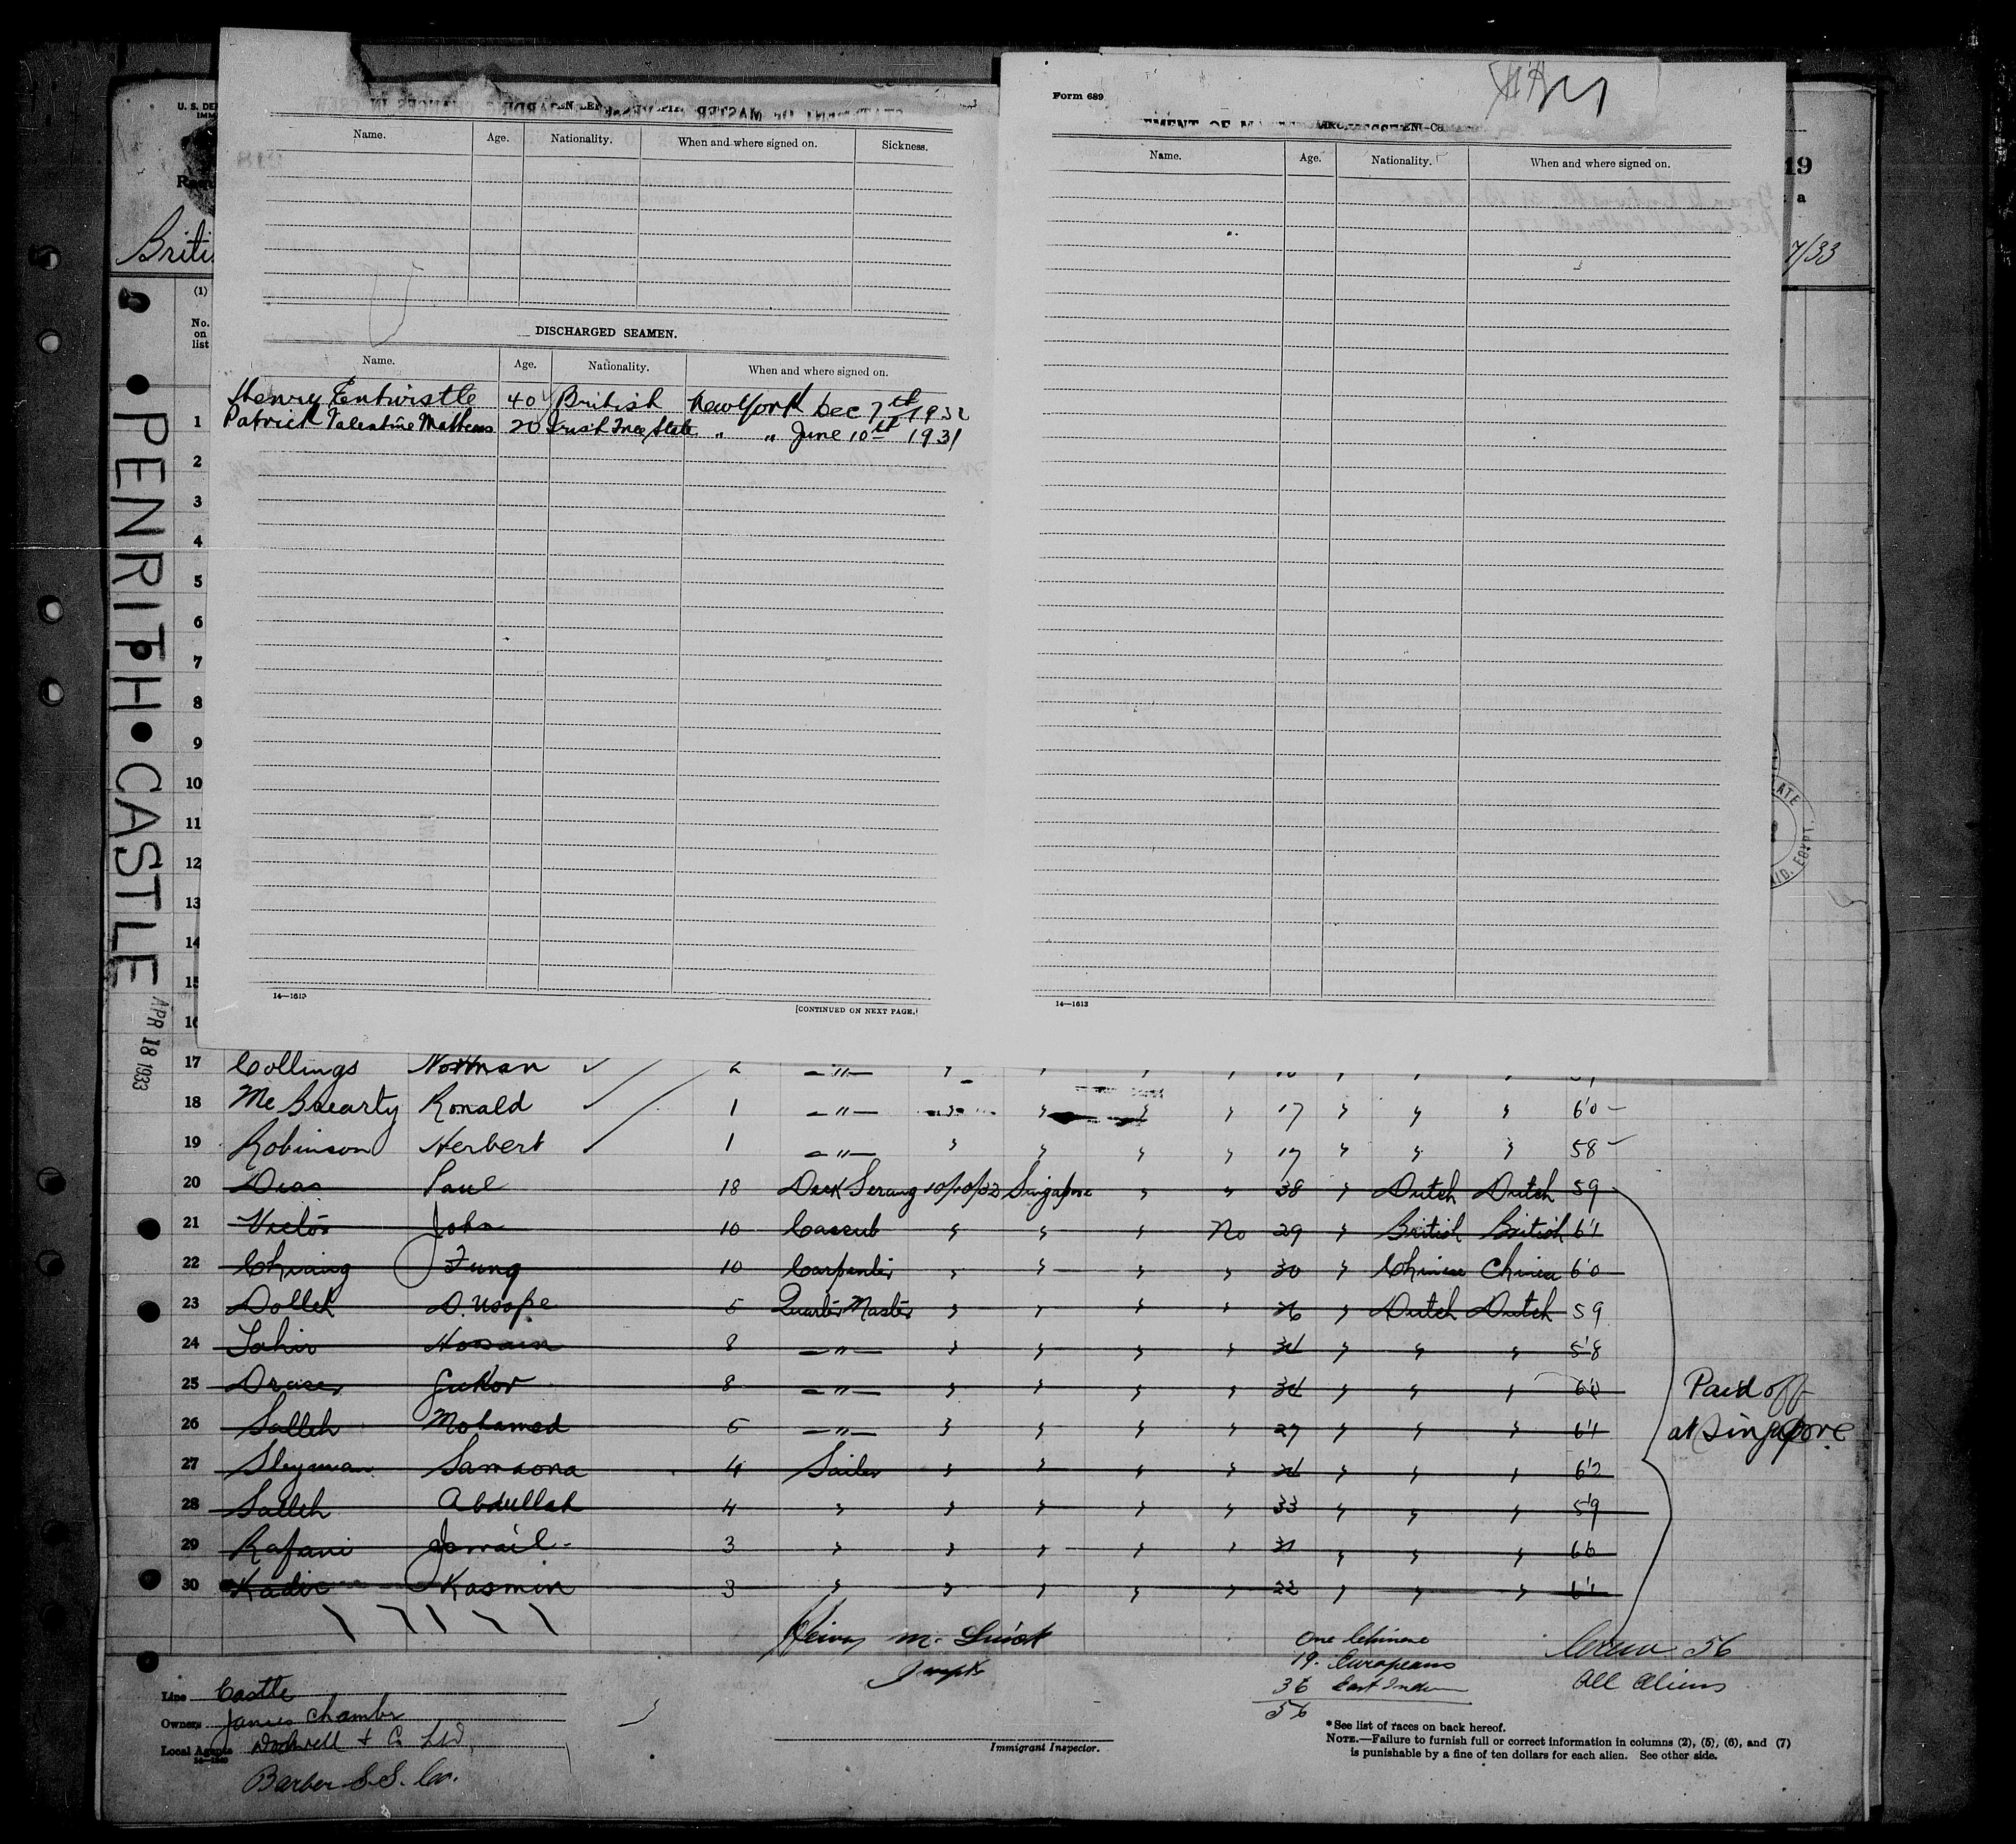 U. S. DE
IMM
Requ
Briti
Name. Age. Nationality. When and where signed on. Sickness.
DISCHARGED SEAMEN.
Name. Age. Nationality. When and where signed on.
Henry Entwistle 40 British New York Dec 7th 1932
Patrick Valentine Mathews 20 Irish Free State " " June 10th 1931
14—1613
[CONTINUED ON NEXT PAGE.]
Form 689
Name. Age. Nationality. When and where signed on.
14—1613
19
a
7/33
(1)
No.
on
list
1
2
3
4
5
6
7
8
9
10
11
12
13
14
15
16
PENRITH CASTLE
APR 18 1933
17 Collings Norman 2 —"—
18 Mc Brearty Ronald 1 —"— " " " 17 " " " 60
19 Robinson Herbert 1 —"— " " " " 17 " " " 58
20 Dias Paul 18 Deck Serang 10/10/32 Singapore " " 38 " Dutch Dutch 59
21 Victor John 10 Cassub " " " No 29 " British British 61
22 Chiang Fung 10 Carpenter " " " " 30 " Chinese Chinese 60
23 Dollah D. Usope 5 Quarter Master " " " " 26 " Dutch Dutch 59
24 Tahir Hossain 8 —"— " " " " 34 " " " 58
25 8 —"— " " " " 34 " " " 60
26 Salleh Mohamed 5 —"— " " " " 27 " " " 61
27 Sleyman Samsona 4 Sailor " " " " " " " 62
28 Salleh Abdullah 4 " " " " " 33 " " " 59
29 Rafani Ismail 3 " " " " " 31 " " " 60
30 Kadir Kasmin 3 " " " " " 22 " " " 61
Paid off
at Singapore
One Chinese
19. Europeans
36 East Indian
56
Crew 56
All Aliens
Line Castle
Owners James Chambers
Local Agents Dodwell & Co Ltd.
Barber S.S. Co.
Immigrant Inspector.
*See list of races on back hereof.
NOTE.—Failure to furnish full or correct information in columns (2), (5), (6), and (7)
is punishable by a fine of ten dollars for each alien. See other side.